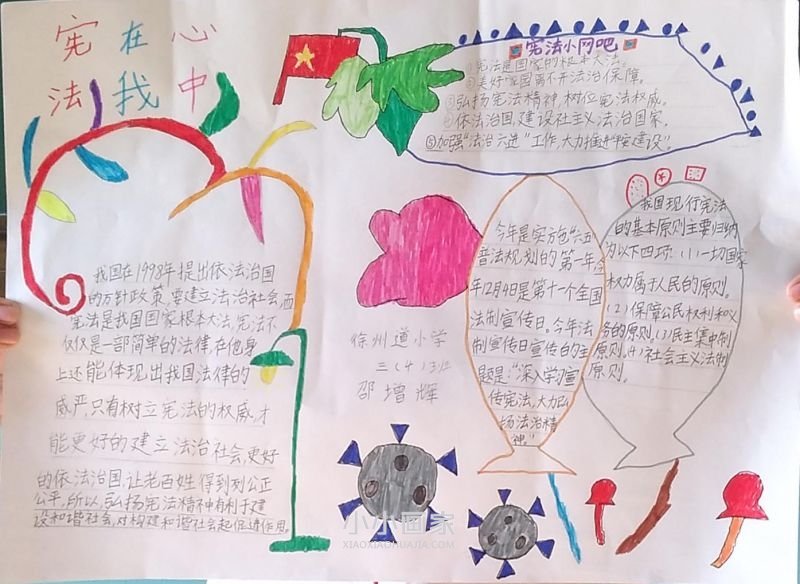 宪在心
法我中
宪法小网吧
①宪法是国家的根本大法。
②美好家园离不开法治保障。
③弘扬宪法精神,树位宪法权威。
④依法治国,建设社主义法治国家。
⑤加强"法治六进"工作,大力推进"安建设"。
我国在1998年提出依法治国
的方针政策,要建立法治社会而
宪法是我国国家根本大法,宪法不
仅仅是一部简单的法律在他身
上还能体现出我国法律的
威严,只有树立宪法的权威,才
能更好的建立法治社会,更好
的依法治国,让老百姓得到公正
公平,所以,弘扬宪法精神有利于建
设和谐社会,对构建和谐社会起促进作用。
徐州道小学
三(4)
邵增辉
今年是实施"六五
普法规划的第一年,
年12月4日是第十一个全国
法制宣传日。今年法
制宣传日宣传的主
题是:"深入学习宣
传宪法,大力弘
扬法治精
神。"
我国现行宪法
的基本原则主要归纳
为以下四项:(1)一切国家
权力属于人民的原则。
(2)保障公民权利和义
务的原则。(3)民主集中制
原则。(4)社会主义法制
原则。
小小画家
XIAOXIAOHUAJIA.COM